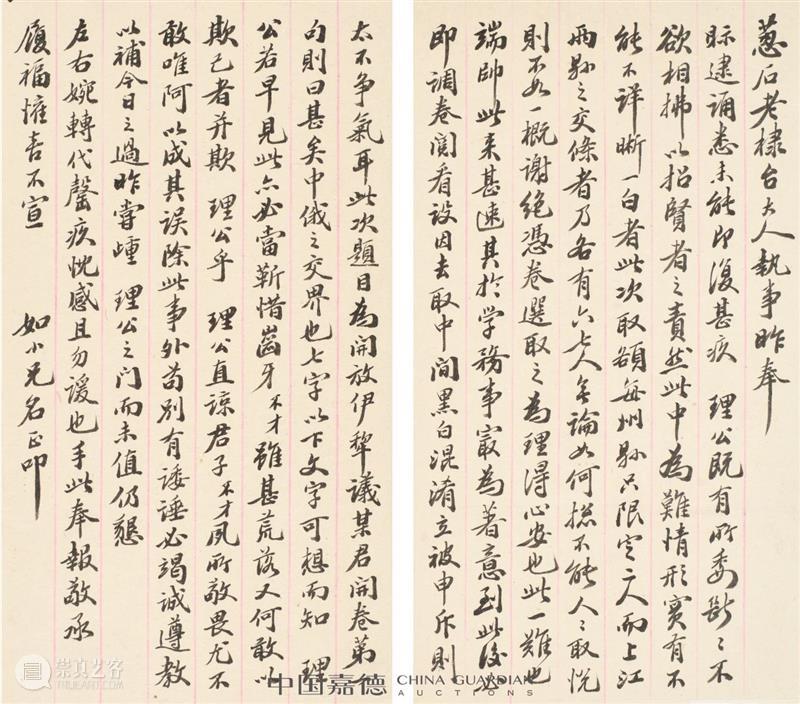 蔥石老棣台大人執事昨奉
賑逮誦悉未能即復甚疚 理公既有所委斷斷不
欲相拂以招賢者之責然此中為難情形實有不
能不詳晰一白者此次取額每州縣只限定二人而上江
兩縣之交條者乃各有六七人無論如何總不能人人取悅
則不如一概謝絕憑卷選取之為理得心安也此一難也
端帥此來甚速其於学務事宷為著意到此後必
即調卷閱看設因去取中間黑白混淆立被申斥則
太不争氣耳此次題目為開放伊犂議某君開卷第一
句則曰甚矣中俄之交界也七字以下文字可想而知 理
公若早見此亦必當靳惜齒牙不才雖甚荒落又何敢以
欺己者并欺 理公乎 理公直諒君子不才夙所敬畏尤不
敢唯阿以成其误除此事外苟別有諉諈必竭誠遵教
以補今日之過昨嘗踵 理公之门而未值仍懇
左右婉轉代罄疚忱感且勿諼也手此奉報敬承
履福惟喜不宣
如小兄名正叩
中国嘉德 CHINA GUARDIAN AUCTIONS
崇真艺客